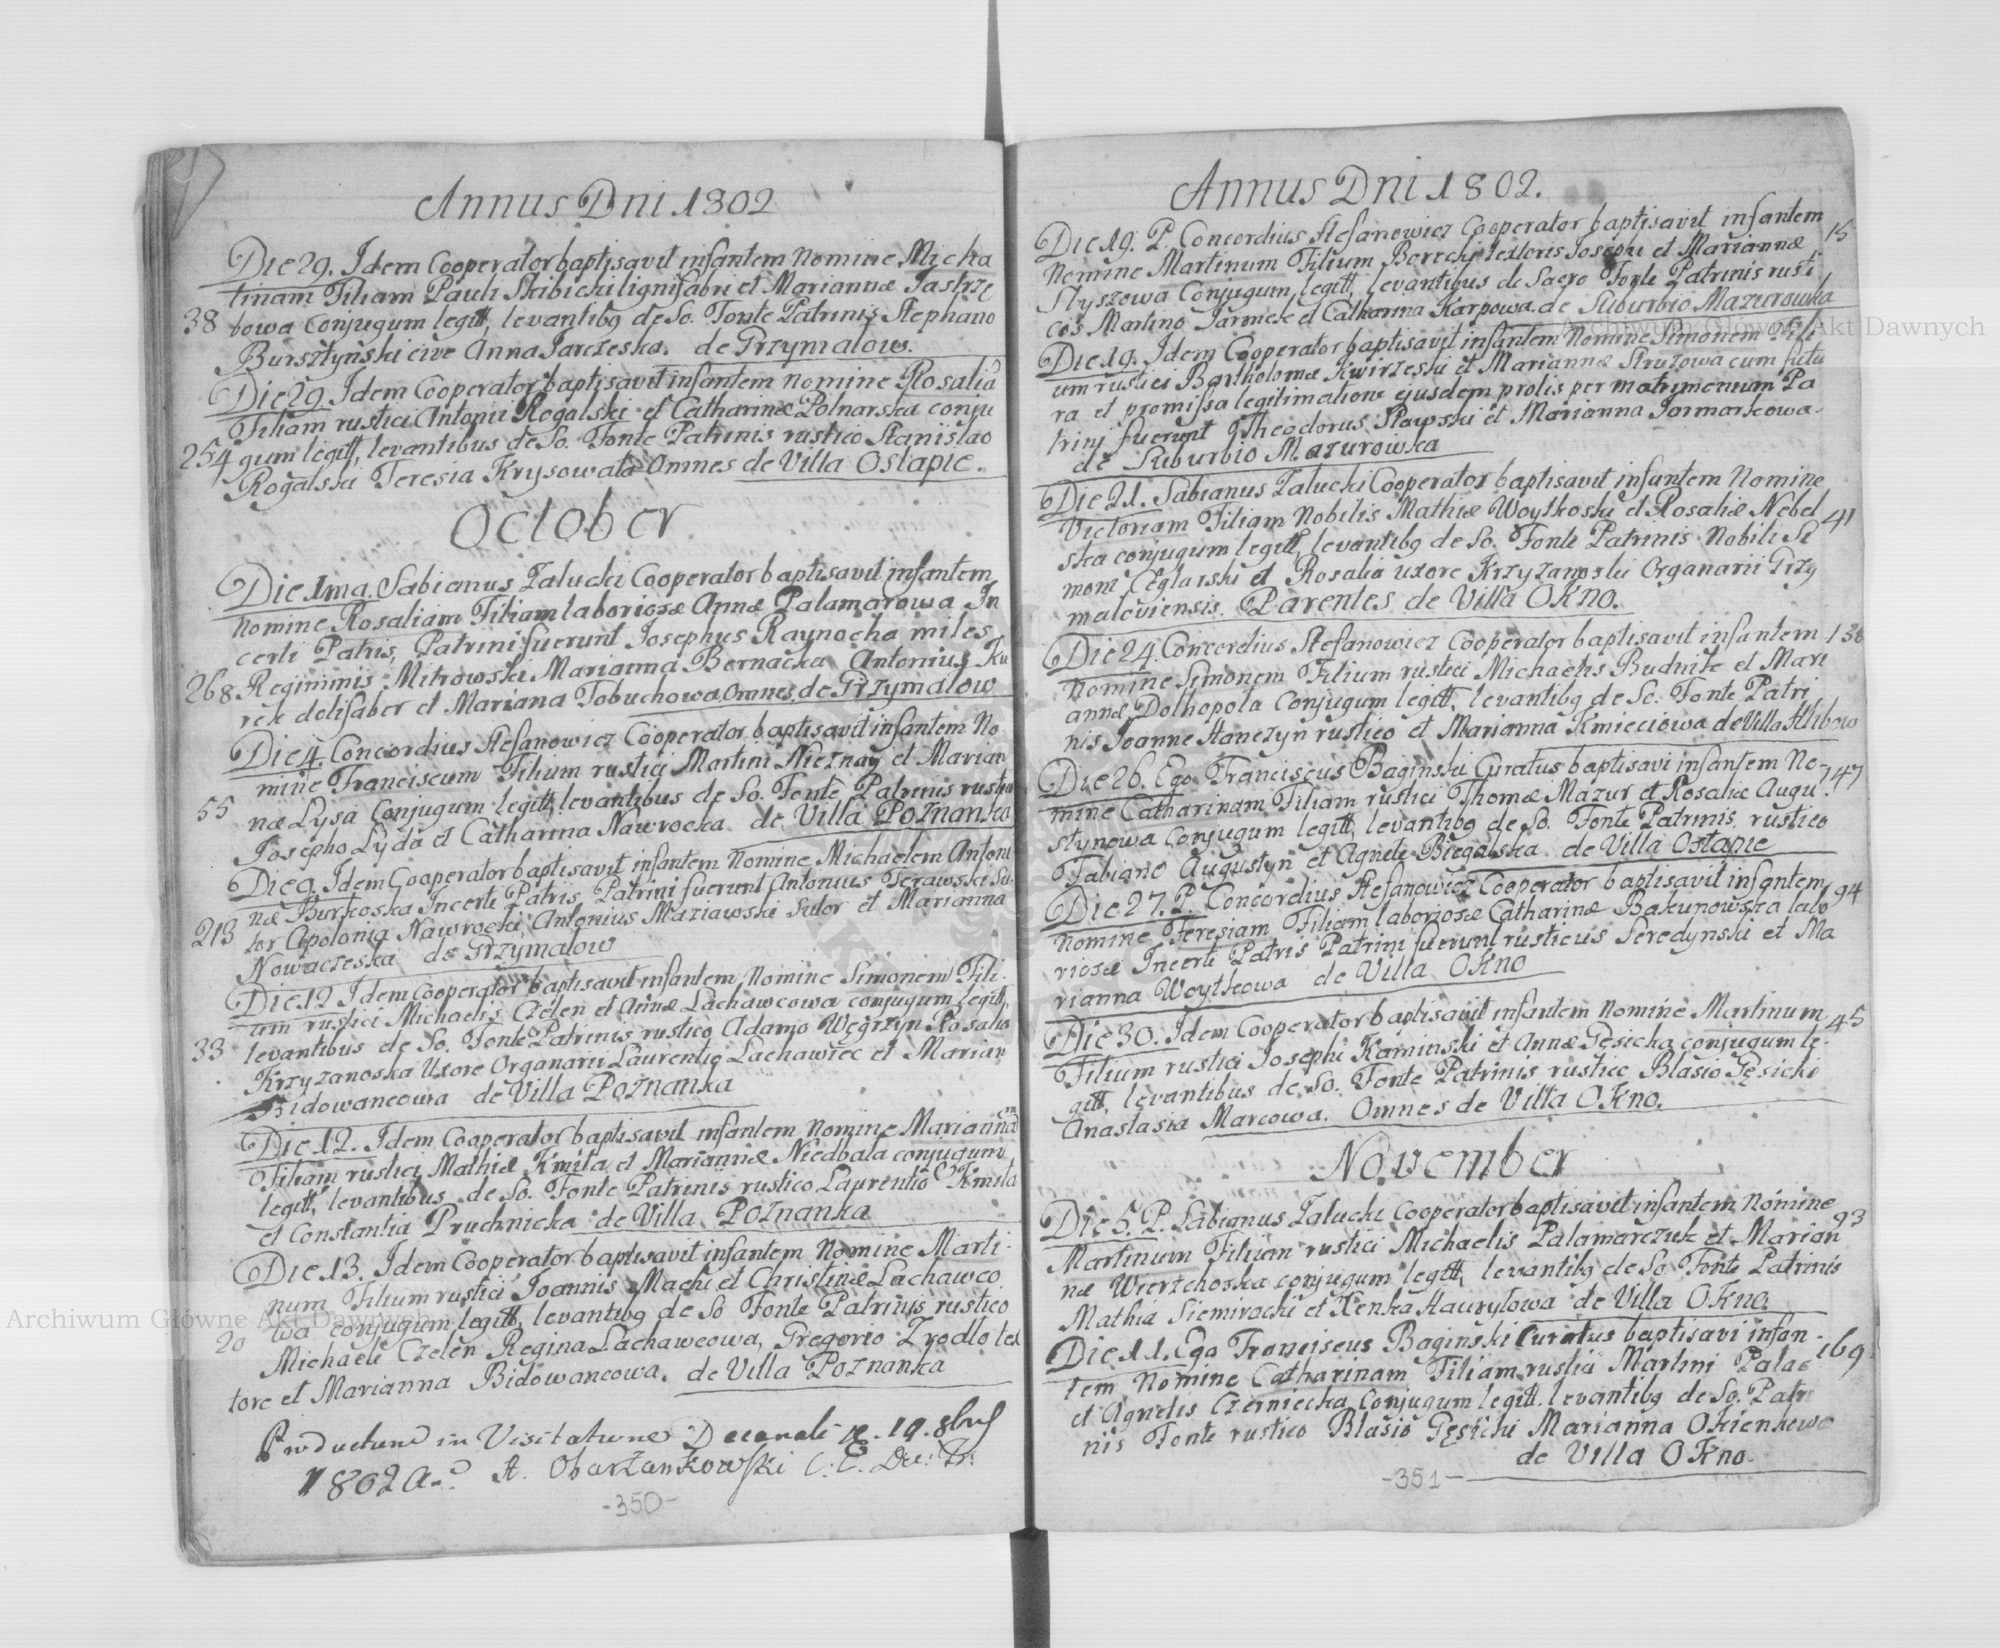 Annus Dni 1802
Die 29. Idem Cooperator baptisavit infantem Nomine Micha
linam Filiam Pauli Skibicki lignifabri et Mariannæ Jastrzę
38 bowa Conjugum legitt, levantibg de So. Fonte Patrinis Stephano
Bursztyński cive Anna Jarczeska. de Grzymalow.
Die 29. Idem Cooperator baptisavit infantem nomine Rosalia
Filiam rustici Antonii Rogalski et Catharinæ Polnarska conju
254 gum legitt, levantibus de So. Fonte Patrinis rustico Stanislao
Rogalski Teresia Krysowata Omnes de Villa Ostapie.
October
Die 1ma. Sabianus Zalucki Cooperator baptisavit infantem
Nomine Rosaliam Filiam laboriosæ Annæ Palamarowa In
certi Patris, Patrini fuerunt Josephus Raynocha miles
268 Regiminis Mitrowski Marianna Bernacka Antonius Ku
rek dolifaber et Mariana Tobuchowa. Omnes de Grzymalow
Die 4. Concordius Stefanowicz Cooperator baptisavit infantem No
mine Franciscum Filium rustici Martini Nieznay et Marian
55 næ Lysa Conjugum legitt, levantibus de So. Fonte Patrinis rustico
Josepho Lyda et Catharina Nawrocka de Villa Poznanka
Die 9. Idem Cooperator baptisavit infantem Nomine Michaelem Antoni
næ Burkoska Incerti Patris, Patrini fuerunt Antonius Terawski Su
213 tor Apolonia Nawrocki, Antonius Maziawski Sutor et Marianna
Nowaczeska de Grzymalow
Die 12 Idem Cooperator baptisavit infantem Nomine Simonem Fili-
um rustici Michaelis Czelen et Annæ Lachawcowa conjugum legitt,
33 levantibus de So. Fonte Patrinis rustico Adamo Węgrzyn Rosalia
Krzyzanoska Uxore Organarii Laurentio Lachawiec et Marian
Bidowancowa de Villa Poznanka
Die 12. Idem Cooperator baptisavit infantem Nomine Mariannam
Filiam rustici Mathiæ Kmita et Mariannæ Niedbala conjugum
legitt, levantibus de So. Fonte Patrinis rustico Laurentio Kmita
et Constantia Pruchnicka de Villa Poznanka
Die 13. Idem Cooperator baptisavit infantem Nomine Marti-
num Filium rustici Joannis Machi et Christinæ Lachawco
20 wa conjugum legitt, levantibg de So Fonte Patrinis rustico
Michaeli Czelen Regina Lachawcowa, Gregorio Zrodlo tex
tore et Marianna Bidowancowa. de Villa Poznanka
Productum in Visitatione Decanali 19. 8bris
1802 A. Obarzankowski
-350-
Annus Dni 1802.
Die 19. P. Concordius Stefanowicz Cooperator baptisavit infantem 15
Nomine Martinum Filium Berecki textoris Josephi et Mariannæ
Slyszowa Conjugum legitt, levantibus de Sacro Fonte Patrinis rusti
cos Martino Jarmek et Catharina Karpowa. de Suburbio Mazurowka
Die 19. Idem Cooperator baptisavit infantem Nomine Simonem Fili
um rustici Bartholomæ Kwirzeski et Mariannæ Struzowa cum futu
ra et promissa legitimatione ejusdem prolis per matrymonium Pa
trini fuerunt Theodorus Slawski et Marianna Jarmarkowa.
de Suburbio Mazurowka
Die 21. Sabianus Zalucki Cooperator baptisavit infantem Nomine
Victoriam Filiam Nobilis Mathiæ Woytkoski et Rosaliæ Nebel 41
ska conjugum legitt, levantibg de So. Fonte Patrinis Nobili Si
moni Ceglarski et Rosalia uxore Krzyzanoski Organarii Grzy
maloviensis. Parentes de Villa Okno.
Die 24. Concordius Stefanowicz Cooperator baptisavit infantem 138
Nomine Simonem Filium rustici Michaelis Budnik et Mari
annæ Dolhopola Conjugum legitt, levantibg de So. Fonte Patri
nis Joanne Hanczyn rustico et Marianna Kmieciowa de Villa Hlibow
Die 26. Ego Franciscus Baginski Curatus baptisavi infantem No- 147
mine Catharinam Filiam rustici Thomæ Mazur et Rosaliæ Augu
stynowa Conjugum legitt, levantibg de So. Fonte Patrinis rustico
Fabiano Augustyn et Agnete Biegalska de Villa Ostapie
Die 27. P. Concordius Stefanowicz Cooperator baptisavit infantem 194
Nomine Teresiam Filiam laboriosæ Catharinæ Bakunowska labo
riosæ Incerti Patris Patrini fuerunt rusticus Seredynski et Ma
rianna Woytkowa de Villa Okno
Die 30. Idem Cooperator baptisavit infantem Nomine Martinum 45
Filium rustici Josephi Kaminski et Annæ Gęsicka conjugum le-
gitt, levantibus de So. Fonte Patrinis rustico Blasio Gęsicki
Anastasia Marcowa. Omnes de Villa Okno.
November
Die 5. P. Sabianus Zalucki Cooperator baptisavit infantem Nomine
Martinum Filium rustici Michaelis Palamarczuk et Marian 93
næ Wierzchoska conjugum legitt, levantibg de So Fonte Patrinis
Mathia Siemiracki et Xenka Haurylowa de Villa Okno.
Die 11. Ego Franciscus Baginski Curatus baptisavi infan- 169
tem Nomine Catharinam Filiam rustici Martini Palac
et Agnetis Czerniecka Conjugum legitt. levantibg de So. Patri
nis Fonte rustico Blasio Gęsicki Marianna Okienkowa
de Villa Okno.
-351-
Archiwum Główne Akt Dawnych
Archiwum Główne Akt Dawnych